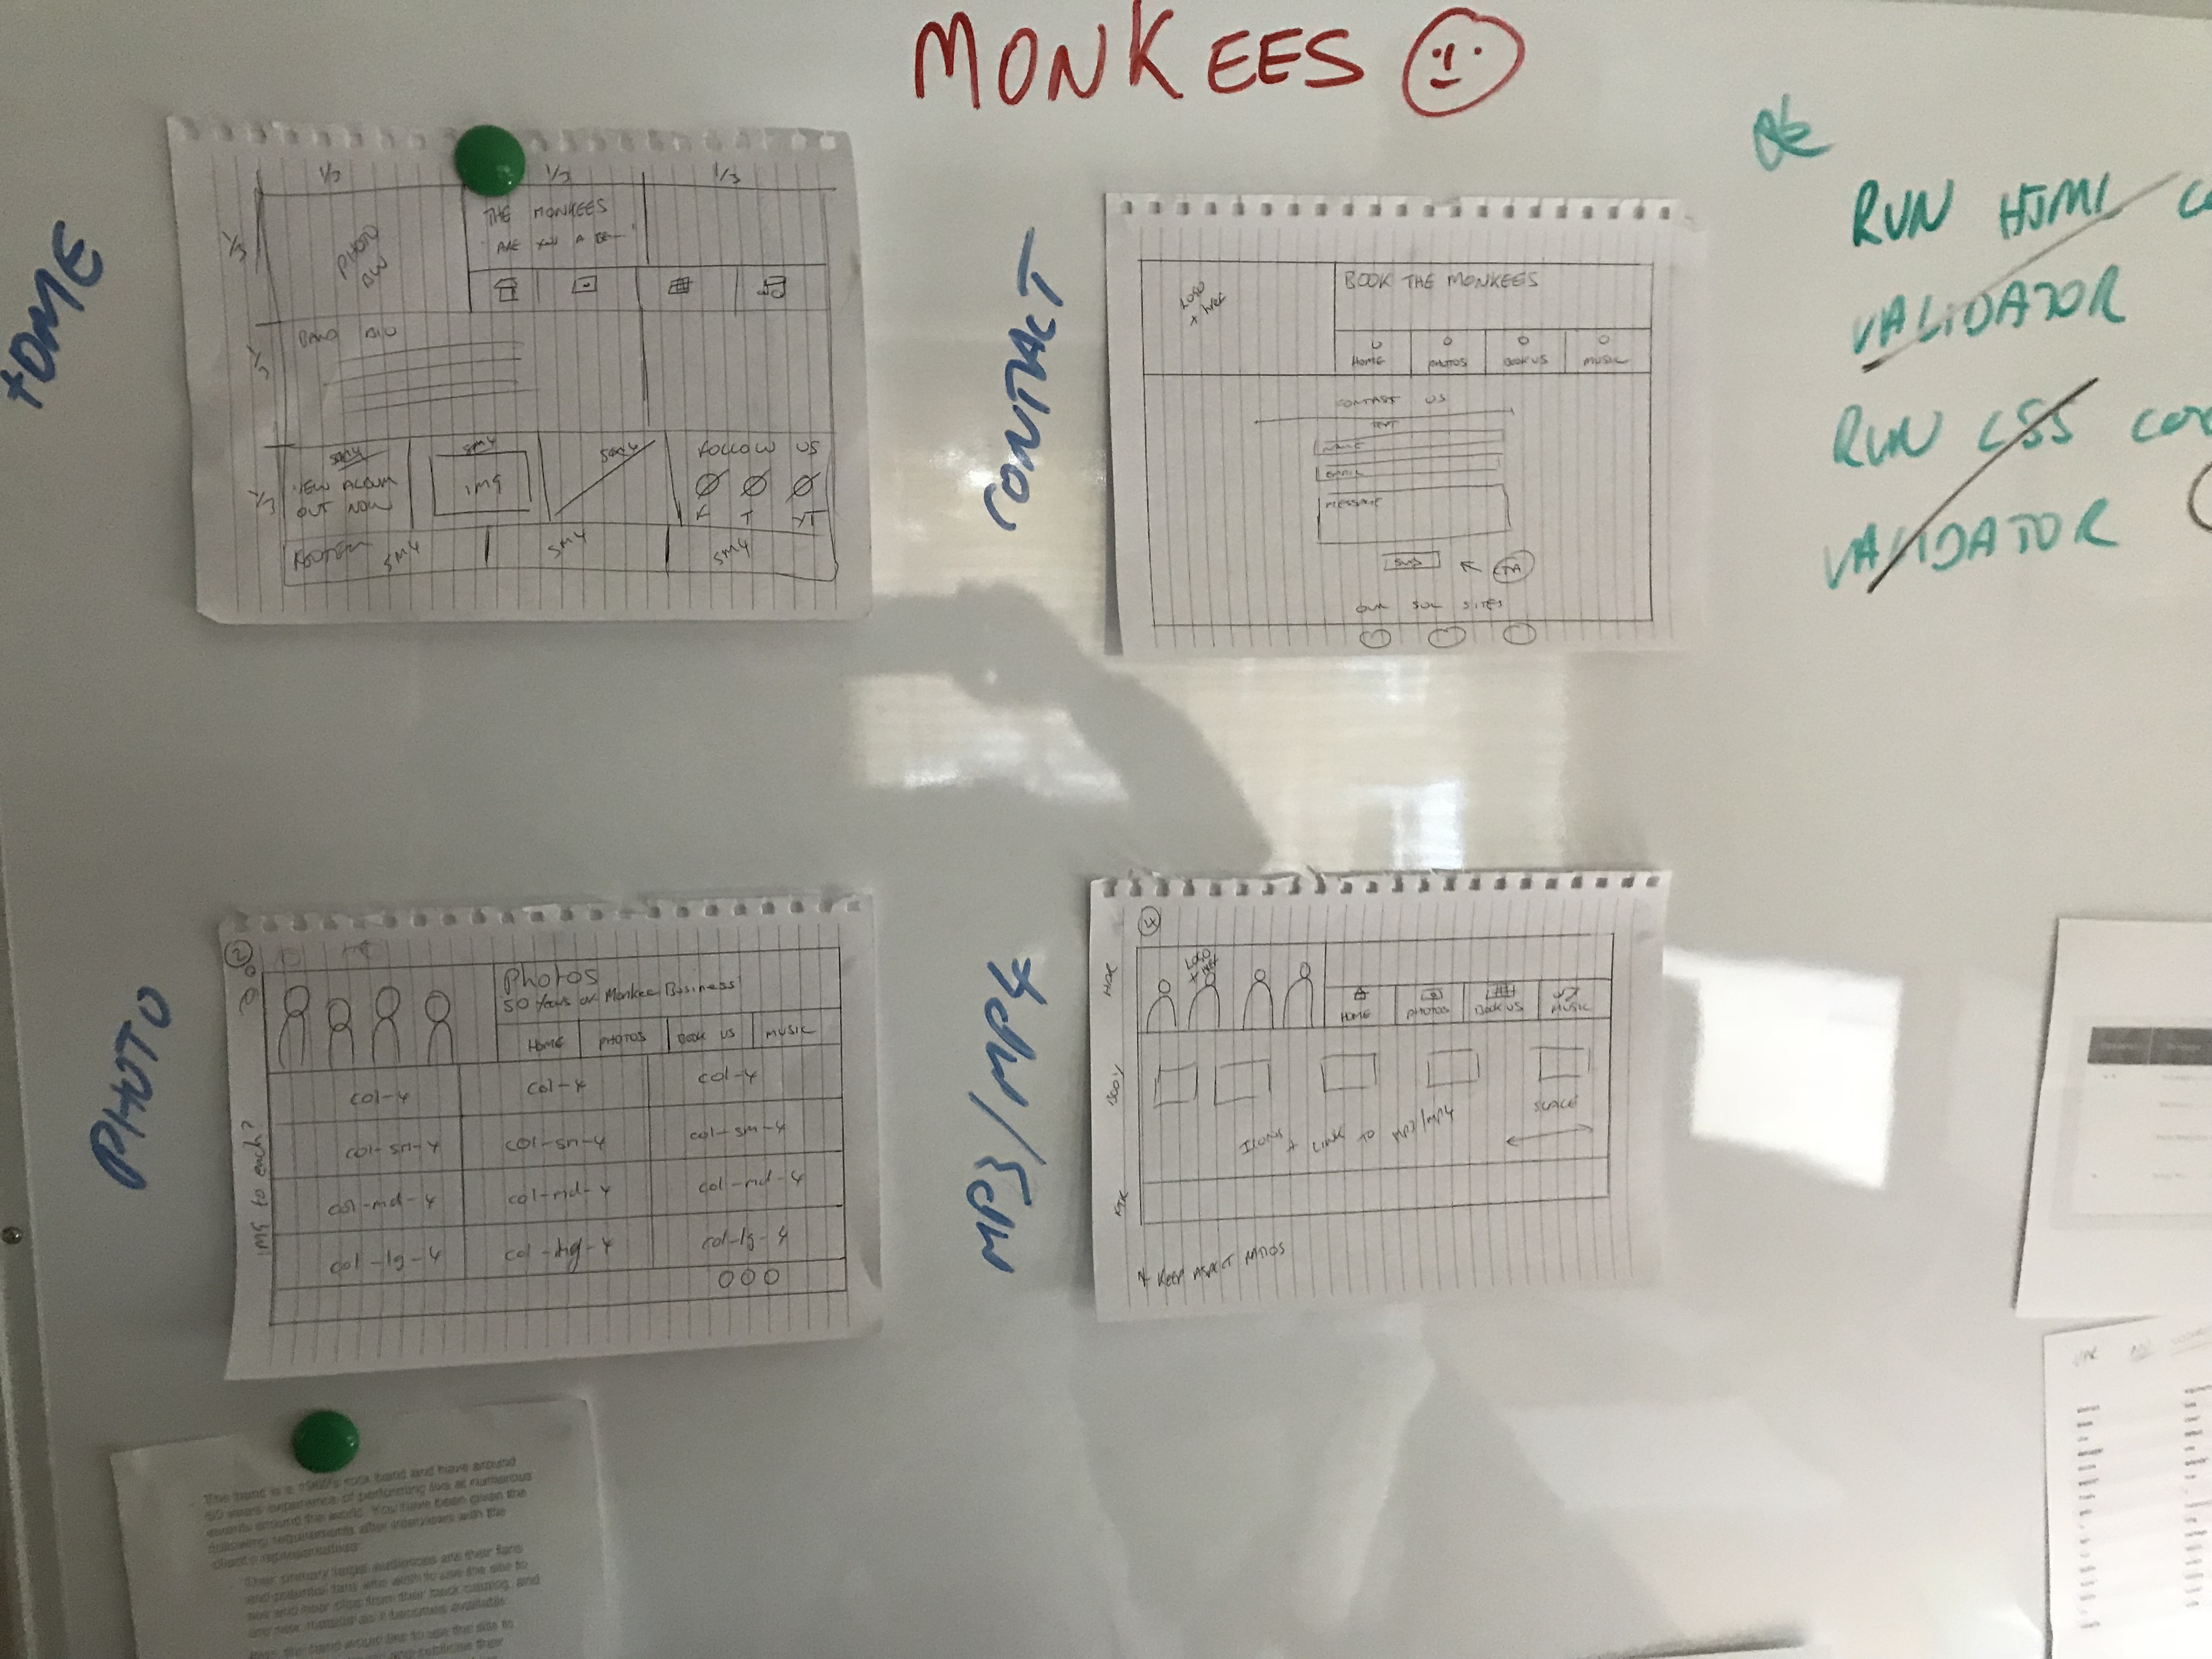 MONKEES
HOME
1/3 1/3 1/3
1/3
1/3
1/3
PHOTO
BW
THE MONKEES
BAND BIO
SM4
NEW ALBUM
OUT NOW
SM4
img
SM4
FOLLOW US
F T YT
FOOTER SM4 SM4 SM4
CONTACT
LOGO
+ href
BOOK THE MONKEES
HOME PHOTOS BOOK US MUSIC
CONTACT US
TEXT
NAME
EMAIL
MESSAGE
SUB
CTA
OUR SOC SITES
RUN HTML
VALIDATOR
RUN CSS
VALIDATOR
PHOTO
2
Photos
50 Years of Monkee Business!
HOME PHOTOS BOOK US MUSIC
col-4 col-4 col-4
col-sm-4 col-sm-4 col-sm-4
col-md-4 col-md-4 col-md-4
col-lg-4 col-lg-4 col-lg-4
img to each?
MP3/MP4
4
HDR
LOGO
+ href
HOME PHOTOS BOOK US MUSIC
BODY
ICONS + LINK TO MP3/MP4
SCALE
FTR
* KEEP ASPECT RATIOS
The band is a 1960's rock band and have around
50 years experience of performing live at numerous
events around the world. You have been given the
following requirements after interviews with the
client's representatives:
Their primary target audiences are their fans
and potential fans who wish to use the site to
see and hear clips from their back catalog, and
see new material as it becomes available.
Also, the band would like to use the site to
publicise their